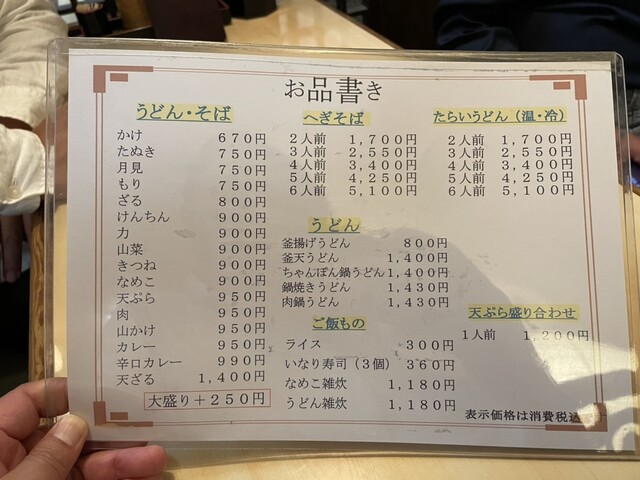 お品書き
うどん・そば
かけ 670円
たぬき 750円
月見 750円
もり 750円
ざる 800円
けんちん 900円
力 900円
山菜 900円
きつね 900円
なめこ 900円
天ぷら 950円
肉 950円
山かけ 950円
カレー 950円
辛口カレー 990円
天ざる 1,400円
大盛り+250円
へぎそば
2人前 1,700円
3人前 2,550円
4人前 3,400円
5人前 4,250円
6人前 5,100円
たらいうどん(温・冷)
2人前 1,700円
3人前 2,550円
4人前 3,400円
5人前 4,250円
6人前 5,100円
うどん
釜揚げうどん 800円
釜天うどん 1,400円
ちゃんぽん鍋うどん 1,400円
鍋焼きうどん 1,430円
肉鍋うどん 1,430円
ご飯もの
ライス 300円
いなり寿司(3個) 360円
なめこ雑炊 1,180円
うどん雑炊 1,180円
天ぷら盛り合わせ
1人前 1,200円
表示価格は消費税込